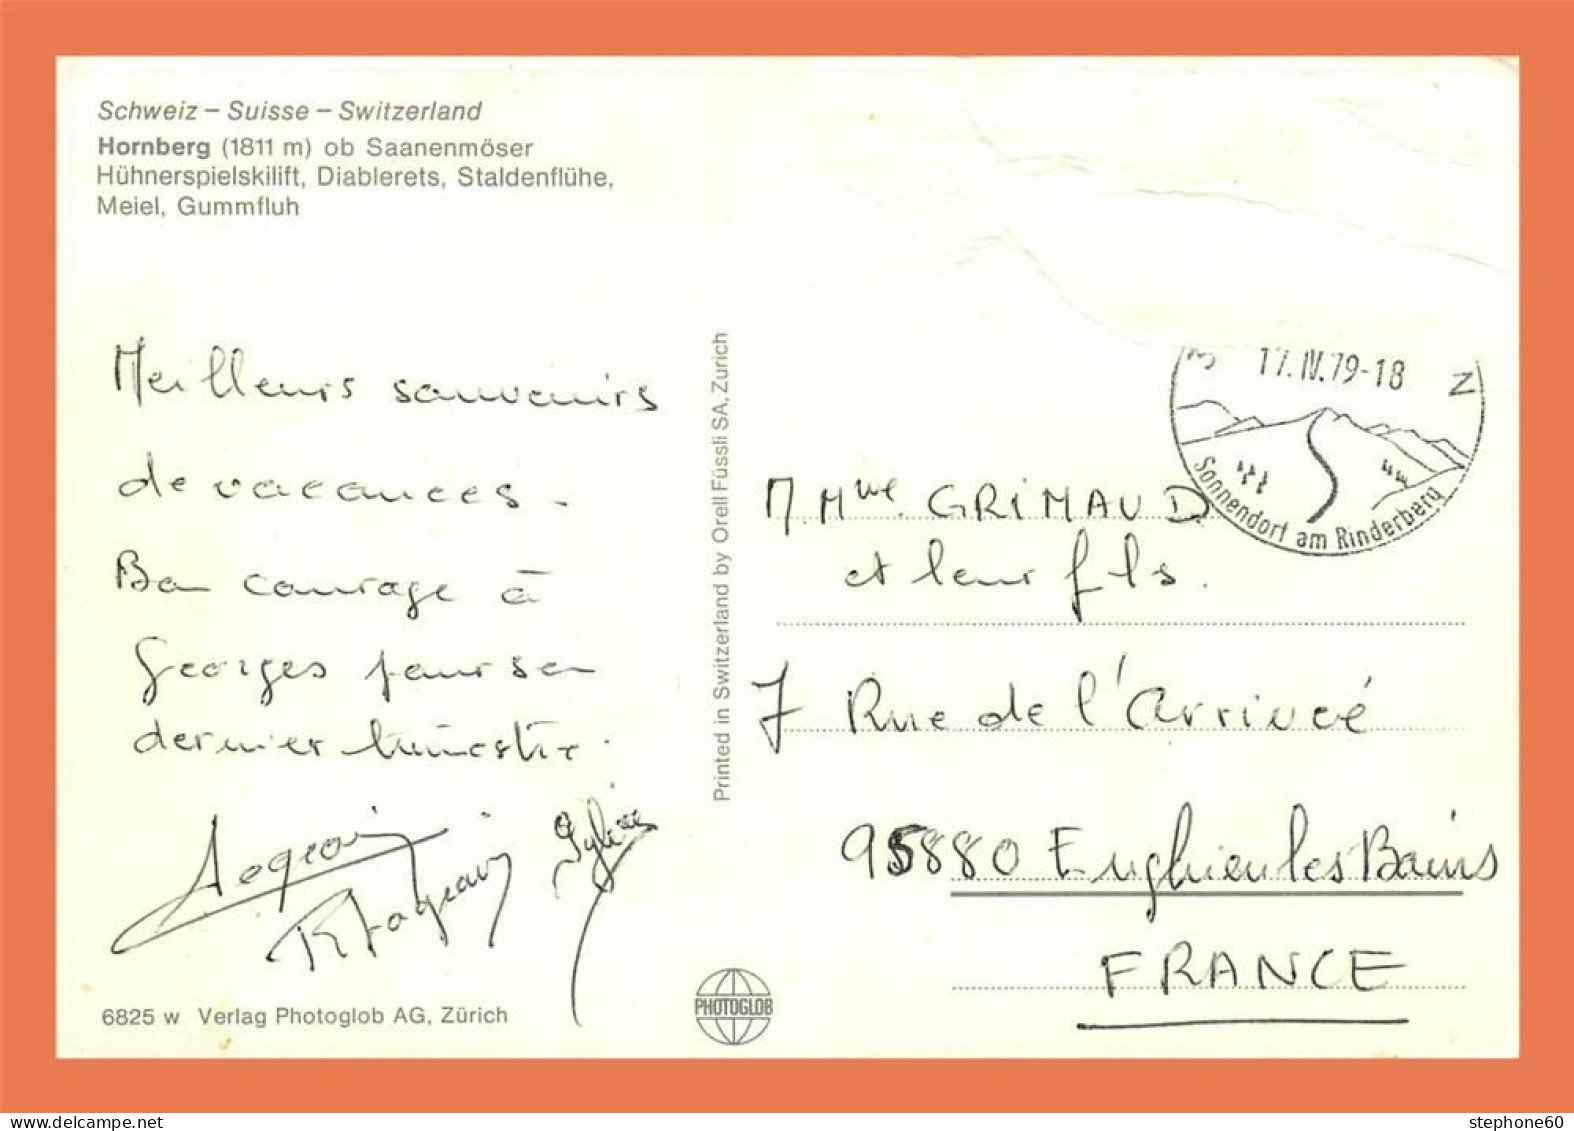 Schweiz – Suisse – Switzerland
Hornberg (1811 m) ob Saanenmöser
Hühnerspielskilift, Diablerets, Staldenflühe,
Meiel, Gummfluh
Meilleurs souvenirs
de vacances.
Bon courage à
Georges pour son
dernier trimestre.
6825 w Verlag Photoglob AG, Zürich
Printed in Switzerland by Orell Füssli SA, Zurich
PHOTOGLOB
17.IV.79-18
Z
Sonnendorf am Rinderberg
M. Mme. GRIMAUD
et leur fils.
7 Rue de l'Arrivée
95880 Enghien les Bains
FRANCE
stephone60